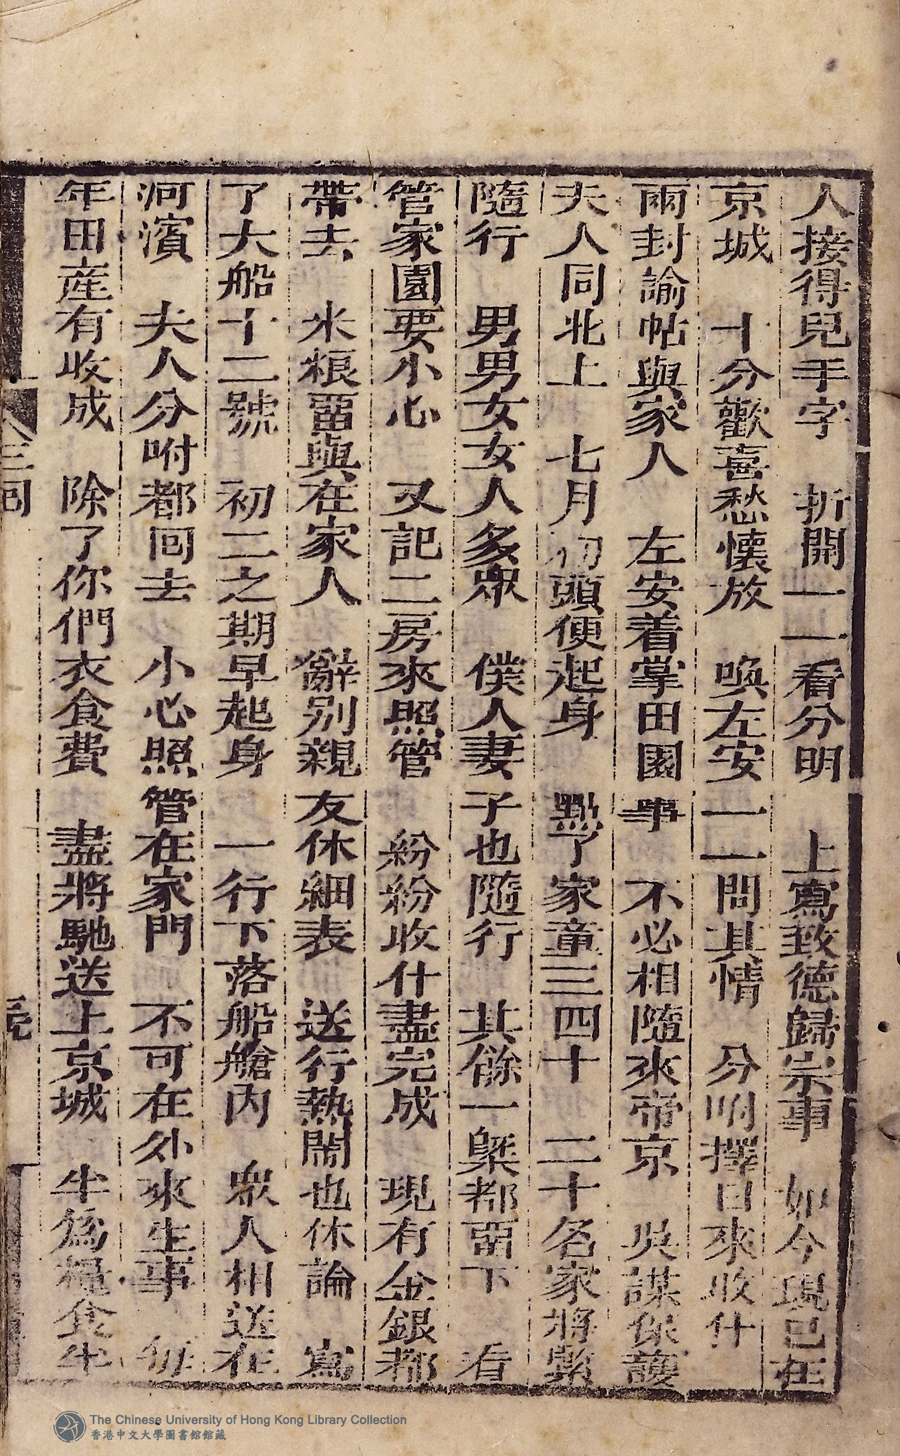 人接得兒手字　折開一一看分明　上寫致德歸宗事　如今現已在
京城　十分歡喜愁懷放　喚左安一一問其情　分咐擇日來收什
兩封諭帖與家人　左安着掌田園事　不必相隨來帝京　吳謀保護
夫人同北上　七月初頭便起身　點了家童三四十　二十名家將緊
隨行　男男女女人多衆　僕人妻子也隨行　其餘一槩都畱下　看
管家園要小心　又記二房來照管　紛紛收什盡完成　現有金銀都
帶去　米粮畱與在家人　辭別親友休細表　送行熱閙也休論　寫
了大船十二號　初二之期早起身　一行下落船艙內　衆人相送在
河濱　夫人分咐都囘去　小心照管在家門　不可在外來生事　每
年田産有收成　除了你們衣食費　盡將馳送上京城　半爲糧食半
三囘
The Chinese University of Hong Kong Library Collection
香港中文大學圖書館館藏